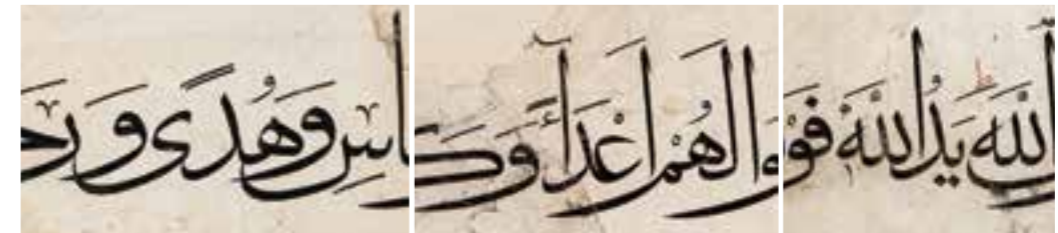 اللهَ يَدُ اللهِ فَوْ
وا لَهُمْ اَعْدَآءً وَكَ
اسِ وَهُدًى وَرَحـ